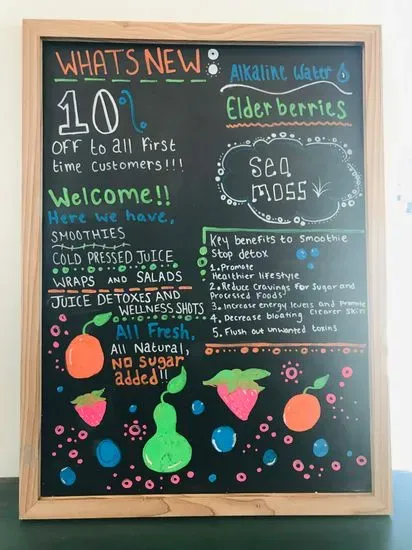 WHATS NEW:
10%
OFF to all first
time customers!!!
Welcome!!
Here we have,
SMOOTHIES
COLD PRESSED JUICE
WRAPS AND SALADS
JUICE DETOXES AND
WELLNESS SHOTS
All Fresh,
All Natural,
NO sugar
added!!
Alkaline Water
Elderberries
sea
moss
Key benefits to smoothie
Stop detox
1. Promote
Healthier lifestyle
2. Reduce Cravings for Sugar and
Processed Foods
3. Increase energy levels and Promote
Clearer Skin
4. Decrease bloating
5. Flush out unwanted toxins